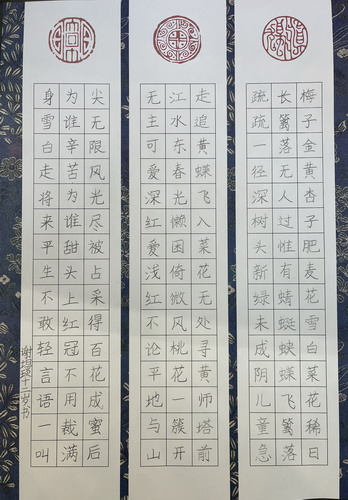 梅子金黄杏子肥麦花雪白菜花稀日
长篱落无人过惟有蜻蜓蛱蝶飞篱落
疏疏一径深树头新绿未成阴儿童急
走追黄蝶飞入菜花无处寻黄师塔前
江水东春光懒困倚微风桃花一簇开
无主可爱深红爱浅红不论平地与山
尖无限风光尽被占采得百花成蜜后
为谁辛苦为谁甜头上红冠不用裁满
身雪白走将来平生不敢轻言语一叫
谢十二岁书